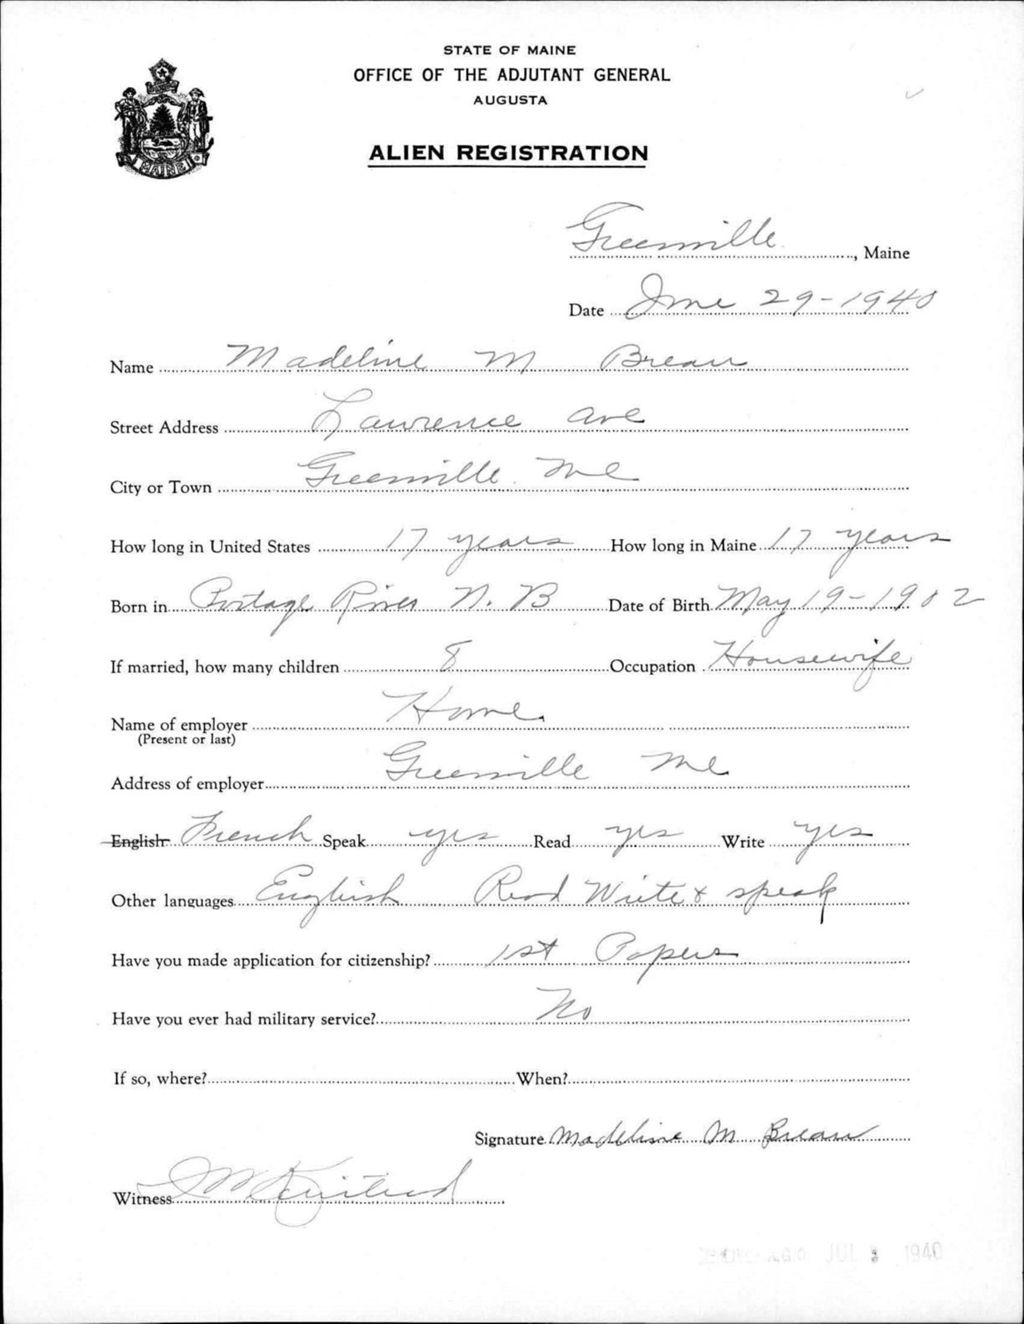 STATE OF MAINE
OFFICE OF THE ADJUTANT GENERAL
AUGUSTA
ALIEN REGISTRATION
MAINE
Greenville, Maine
Date June 29-1940
Name Madeline M Breau
Street Address Lawrence Ave
City or Town Greenville Me
How long in United States 17 years How long in Maine 17 years
Born in Portage River N. B Date of Birth May 19-1902
If married, how many children 8 Occupation Housewife
Name of employer Home
(Present or last)
Address of employer Greenville Me
English French Speak yes Read yes Write yes
Other languages English Read Write & speak
Have you made application for citizenship? 1st Papers
Have you ever had military service? No
If so, where? When?
Signature Madeline M Breau
Witness
JUL 1940